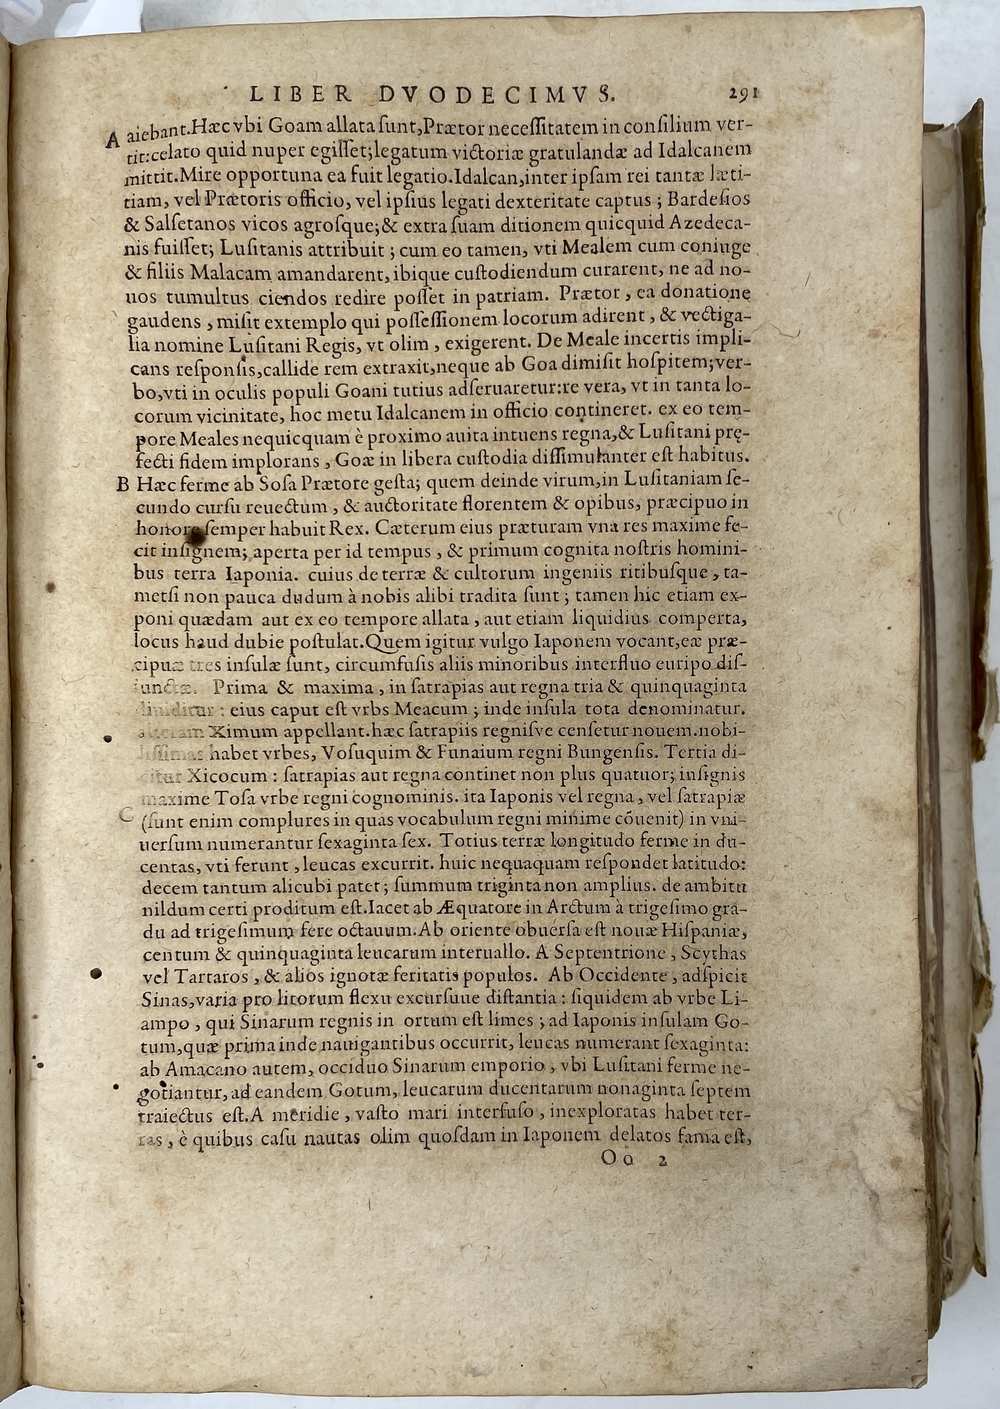 LIBER DVODECIMVS. 291
A aiebant. Hæc vbi Goam allata sunt, Prætor necessitatem in consilium ver-
tit: celato quid nuper egisset; legatum victoriæ gratulandæ ad Idalcanem
mittit. Mire opportuna ea fuit legatio. Idalcan, inter ipsam rei tantæ læti-
tiam, vel Prætoris officio, vel ipsius legati dexteritate captus; Bardesios
& Salsetanos vicos agrosque; & extra suam ditionem quicquid Azedeca-
nis fuisset; Lusitanis attribuit; cum eo tamen, vti Mealem cum coniuge
& filiis Malacam amandarent, ibique custodiendum curarent, ne ad no-
uos tumultus ciendos redire posset in patriam. Prætor, ea donatione
gaudens, misit extemplo qui possessionem locorum adirent, & vectiga-
lia nomine Lusitani Regis, vt olim, exigerent. De Meale incertis impli-
cans responsis, callide rem extraxit, neque ab Goa dimisit hospitem; ver-
bo, vti in oculis populi Goani tutius adseruaretur: re vera, vt in tanta lo-
corum vicinitate, hoc metu Idalcanem in officio contineret. ex eo tem-
pore Meales nequicquam è proximo auita intuens regna, & Lusitani prę-
fecti fidem implorans, Goæ in libera custodia dissimulanter est habitus.
B Hæc ferme ab Sosa Prætore gesta; quem deinde virum, in Lusitaniam se-
cundo cursu reuectum, & auctoritate florentem & opibus, præcipuo in
honore semper habuit Rex. Cæterum eius præturam vna res maxime fe-
cit insignem; aperta per id tempus, & primum cognita nostris homini-
bus terra Iaponia. cuius de terræ & cultorum ingeniis ritibusque, ta-
metsi non pauca dudum à nobis alibi tradita sunt; tamen hic etiam ex-
poni quædam aut ex eo tempore allata, aut etiam liquidius comperta,
locus haud dubie postulat. Quem igitur vulgo Iaponem vocant, eæ præ-
cipuæ tres insulæ sunt, circumfusis aliis minoribus interfluo euripo dis-
iunctæ. Prima & maxima, in satrapias aut regna tria & quinquaginta
diuiditur: eius caput est vrbs Meacum; inde insula tota denominatur.
alteram Ximum appellant. hæc satrapiis regnisve censetur nouem. nobi-
lissimas habet vrbes, Vosuquim & Funaium regni Bungensis. Tertia di-
citur Xicocum: satrapias aut regna continet non plus quatuor; insignis
maxime Tosa vrbe regni cognominis. ita Iaponis vel regna, vel satrapiæ
C (sunt enim complures in quas vocabulum regni minime cōuenit) in vni-
uersum numerantur sexaginta sex. Totius terræ longitudo ferme in du-
centas, vti ferunt, leucas excurrit. huic nequaquam respondet latitudo:
decem tantum alicubi patet; summum triginta non amplius. de ambitu
nildum certi proditum est. Iacet ab Æquatore in Arctum à trigesimo gra-
du ad trigesimum fere octauum. Ab oriente obuersa est nouæ Hispaniæ,
centum & quinquaginta leucarum interuallo. A Septentrione, Scythas
vel Tartaros, & alios ignotæ feritatis populos. Ab Occidente, adspicit
Sinas, varia pro litorum flexu excursuue distantia: siquidem ab vrbe Li-
ampo, qui Sinarum regnis in ortum est limes; ad Iaponis insulam Go-
tum, quæ prima inde nauigantibus occurrit, leucas numerant sexaginta:
ab Amacano autem, occiduo Sinarum emporio, vbi Lusitani ferme ne-
gotiantur, ad eandem Gotum, leucarum ducentarum nonaginta septem
traiectus est. A meridie, vasto mari interfuso, inexploratas habet ter-
ras, è quibus casu nautas olim quosdam in Iaponem delatos fama est,
Oo 2